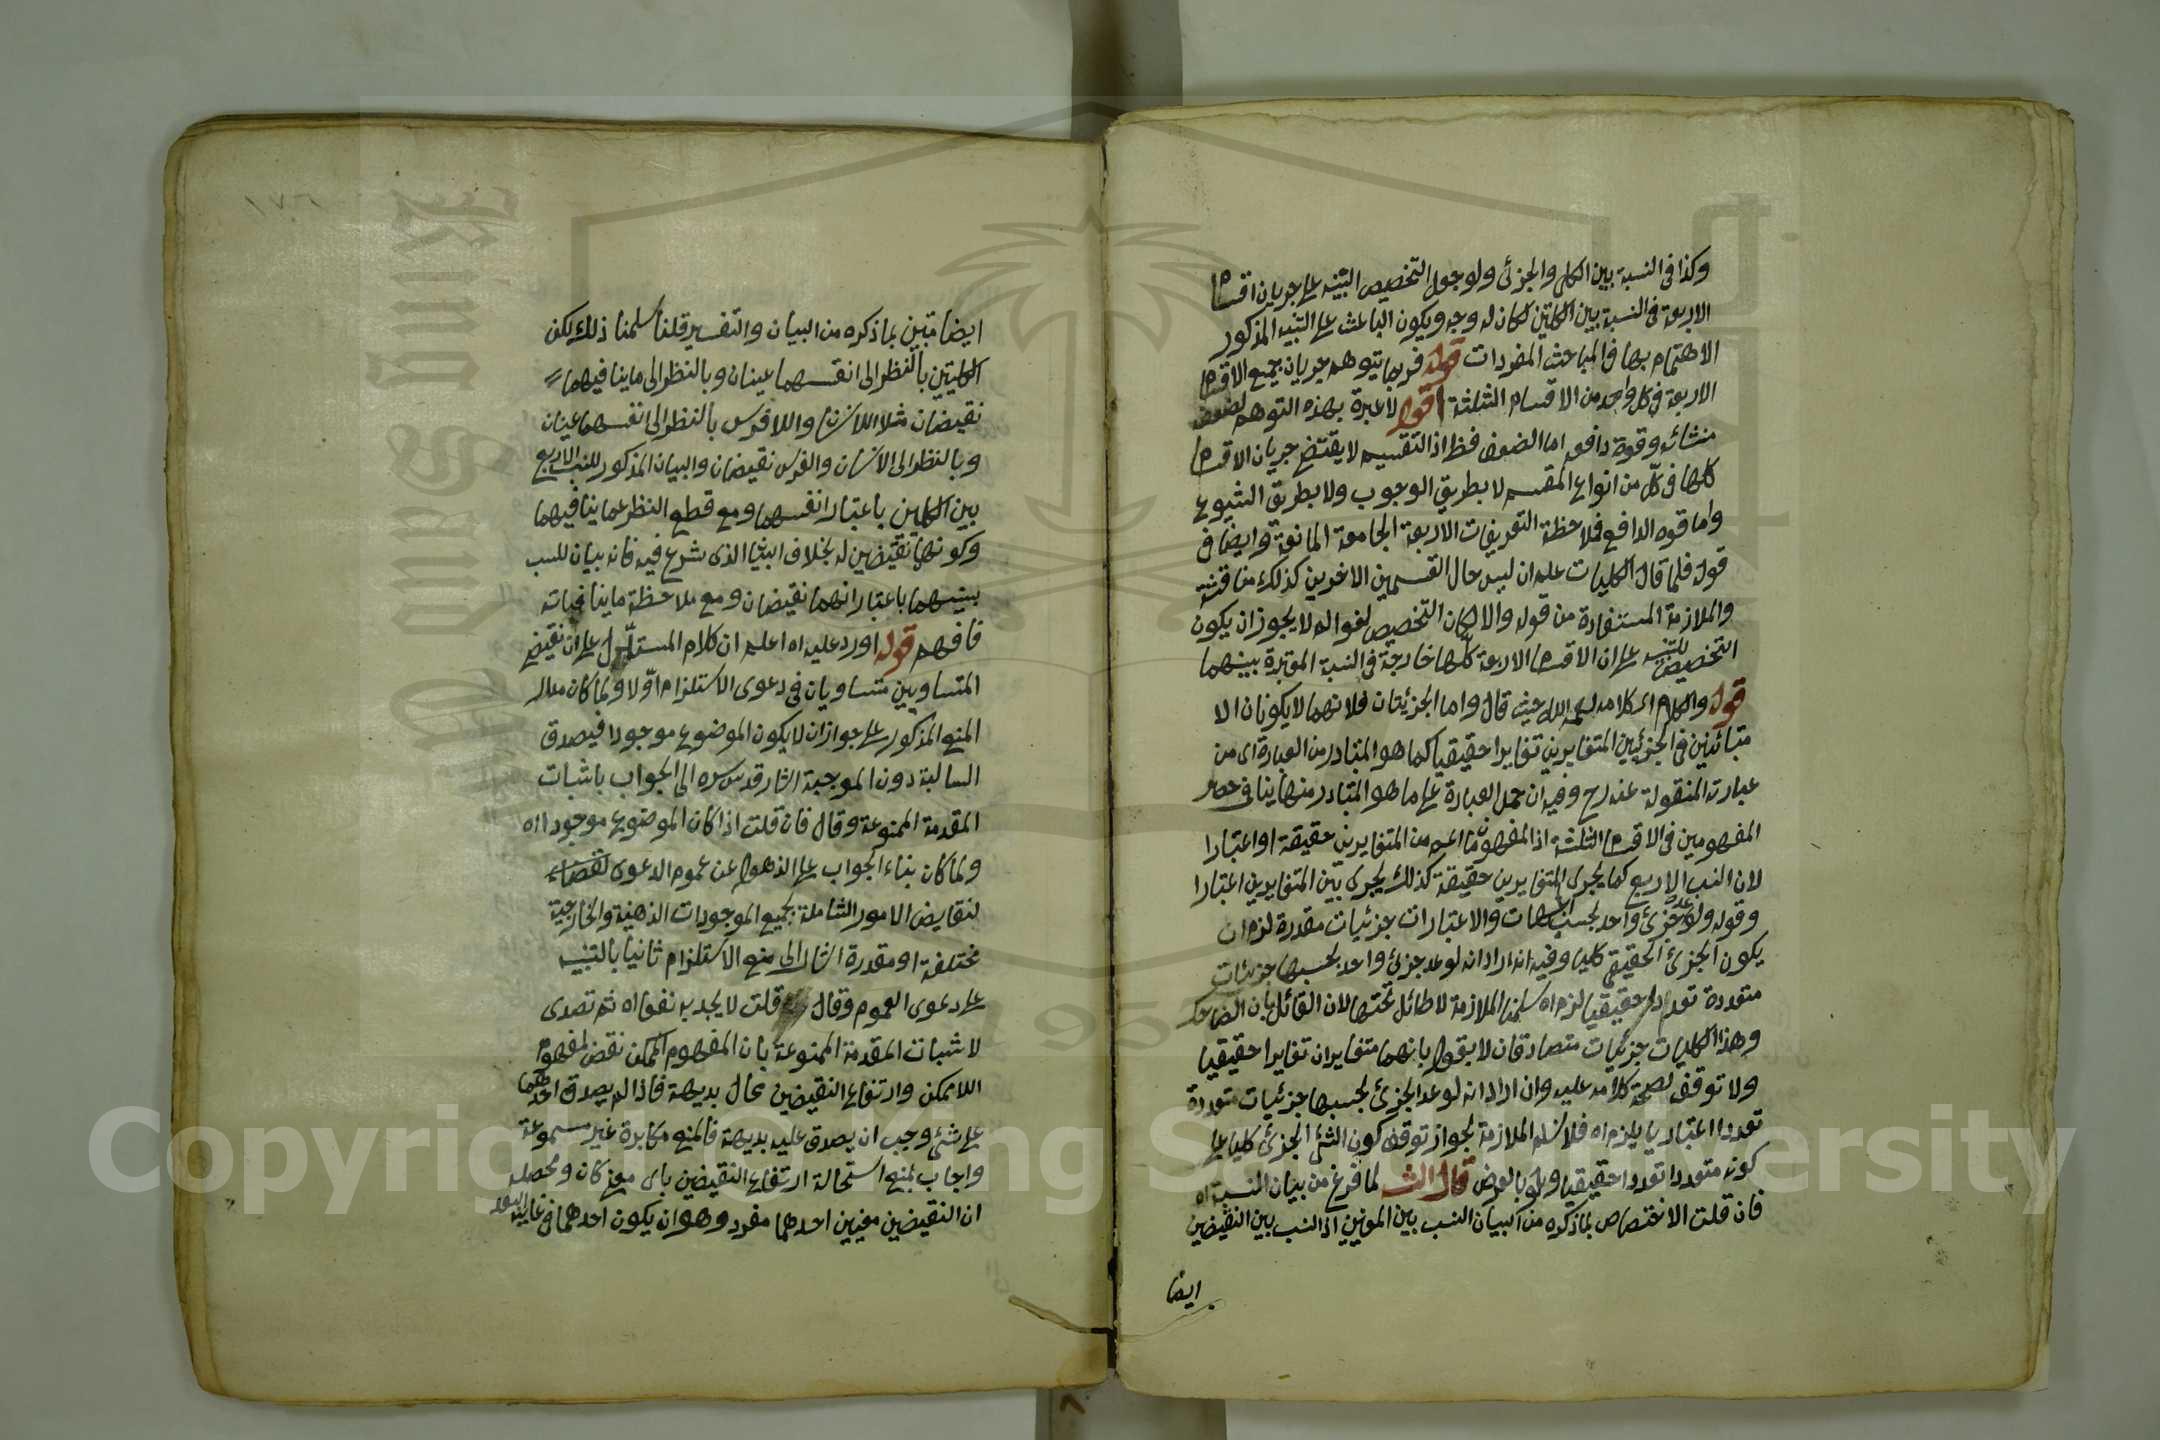 وكذا في النسبة بين الكلي والجزئي ولو جعل التخصيص التنبيه على جريان اقسام
الاربعة في النسبة بين الكليتين لكان له وجه ويكون الباعث على التنبيه المذكور
الاهتمام بها في المباحث المفردات قوله فربما يتوهم جريان جميع الاقسام
الاربعة في كل واحد من الاقسام الثلثة اقول لا عبرة بهذه التوهم لضعف
منشائه وقوة دافعه اما الضعف فظ اذ التقسيم لا يقتضي جريان الاقسام
كلها في كل من انواع المقسم لا بطريق الوجوب ولا بطريق الشيوع
واما قوة الدافع فملاحظة التعريفات الاربعة الجامعة المانعة وايضا في
قوله فلما قال الكليات علم ان ليس حال القسمين الاخرين كذلك مناقشة
والملازمة المستفادة من قوله والا لكان التخصيص لغوا له لا يجوز ان يكون
التخصيص للتنبيه على ان الاقسام الاربعة كلها خارجة في النسبة المعتبرة بينهما
قوله والكلام اى كلامه رحمه الله حيث قال واما الجزئيتان فلانهما لا يكونان الا
متبائنين في الجزئيين المتغايرين تغايرا حقيقيا كما هو المتبادر من العبارة اى من
عبارته المنقولة عنه رح وفيه ان حمل العبارة على ما هو المتبادر منها ينافي حصر
المفهومين في الاقسام الثلثة اذ المفهومان اعم من المتغايرين حقيقة او اعتبارا
لان النسب الاربع كما يجرى المتغايرين حقيقة كذلك يجرى بين المتغايرين اعتبارا
وقوله ولو عد جزئي واحد بحسب الجهات والاعتبارات جزئيات متعددة لزم ان
يكون الجزئي الحقيقي كليا وفيه انه اراد انه لو عد جزئي واحد بحسبها جزئيات
متعددة تعددا حقيقيا لزم اه سلمنا الملازمة لا طائل تحتها لان القائل بان الضاحك
وهذا الكليات جزئيات متصادقان لا يقول بانهما متغايران تغايرا حقيقيا
ولا توقف لصحة كلامه عليه وان اراد انه لو عد الجزئي بحسبها جزئيات متعددة
تعددا اعتباريا يلزم اه فلا نسلم الملازمة لجواز توقف كون الشئ الجزئي كليا على
كونه متعددا تعددا حقيقيا ولو بالعرض قال الش لما فرغ من بيان النسبة اه
فان قلت الاختصاص بما ذكره من البيان النسب بين العينين اذ النسب بين النقيضين
ايضا
ايضا تبين بما ذكره من البيان والتفسير قلنا سلمنا ذلك لكن
الكليتين بالنظر الى انفسهما عينان وبالنظر الى ما ينافيهما
نقيضان مثلا اللاانسان واللافرس بالنظر الى انفسهما عينان
وبالنظر الى الانسان والفرس نقيضان والبيان المذكور للنسب الاربع
بين الكليين باعتبار انفسهما ومع قطع النظر عما ينافيهما
وكونهما نقيضين له بخلاف البيان الذى شرع فيه فانه بيان للنسب
بينهما باعتبار انهما نقيضان ومع ملاحظة ما ينافيانه
فافهم قوله اورد عليه اه اعلم ان كلام المستدل على ان نقيض
المتساويين متساويان في دعوى الاستلزام اولا ولما كان مدار
المنع المذكور على جواز ان لا يكون الموضوع موجودا فيصدق
السالبة دون الموجبة اشار قدس سره الى الجواب باثبات
المقدمة الممنوعة وقال فان قلت اذا كان الموضوع موجودا اه
ولما كان بناء الجواب على الذهول عن عموم الدعوى
لنقايض الامور الشاملة بجميع الموجودات الذهنية والخارجية
مختلفة او مقدرة اشار الى منع الاستلزام ثانيا بالتنبيه
على دعوى العموم وقال قلت لا يجديه نفعا اه ثم تصدى
لاثبات المقدمة الممنوعة بان المفهوم الممكن نقض لمفهوم
اللاممكن وارتفاع النقيضين محال بديهة فاذا لم يصدق احدهما
على شئ وجب ان يصدق عليه بديهة فالمنع مكابرة غير مسموعة
واجاب بمنع استحالة ارتفاع النقيضين باى معنى كان ومحصله
ان النقيضين معنيين احدهما مفرد وهو ان يكون احدهما في غاية البعد
Copyright © King Saud University